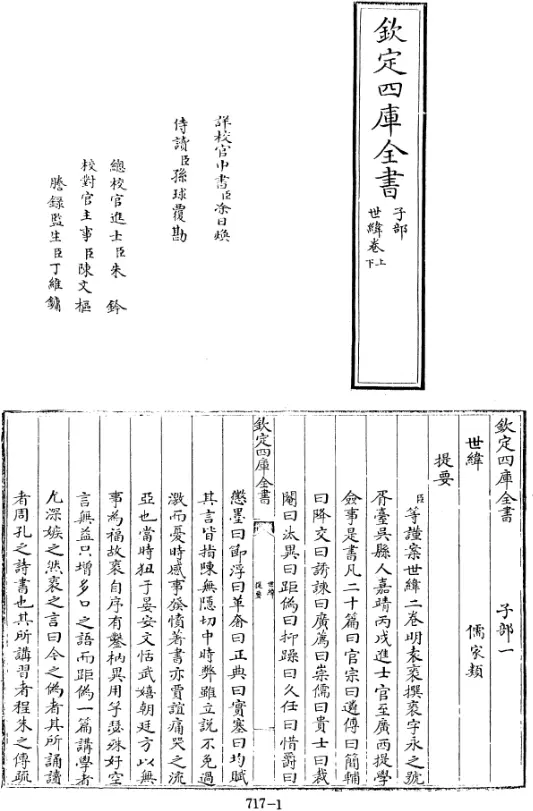 欽定四庫全書
子部
世緯卷上下
詳校官中書臣涂日煥
侍讀臣孫球覆勘
總校官進士臣朱鈐
校對官主事臣陳文樞
謄錄監生臣丁維鏞
欽定四庫全書 子部一
世緯 儒家類
提要
臣等謹案世緯二卷明袁袠撰袠字永之號
胥臺吳縣人嘉靖丙戌進士官至廣西提學
僉事是書凡二十篇曰官宗曰遴傅曰簡輔
曰降交曰誘諫曰廣薦曰崇儒曰貴士曰裁
閹曰汰異曰距偽曰抑躁曰久任曰惜爵曰
欽定四庫全書
世緯
提要
懲墨曰節浮曰革奢曰正典曰實塞曰均賦
其言皆指陳無隱切中時弊雖立說不免過
激而憂時感事發憤著書亦賈誼痛哭之流
亞也當時狃于晏安文恬武嬉朝廷方以無
事為福故袠自序有鑿枘異用竽瑟殊好空
言無益只增多口之語而距偽一篇講學者
尤深嫉之然袠之言曰今之偽者其所誦讀
者周孔之詩書也其所講習者程朱之傳疏
717-1